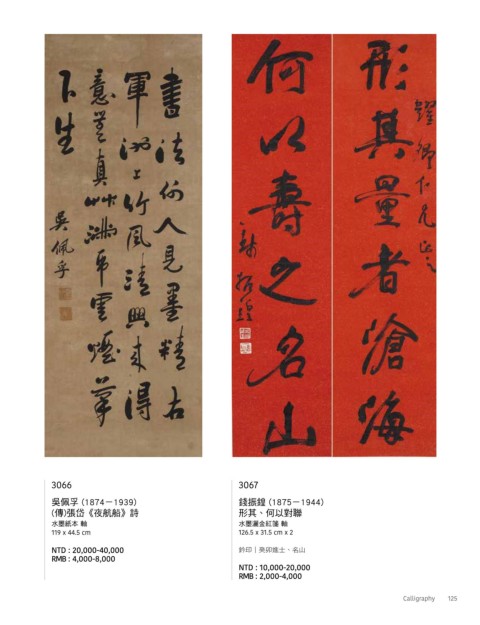 書法何人見墨精右
軍池上竹風清興來得
意無真艸滿帋雲煙筆
下生
吳佩孚
形其量者滄海
耀卿仁兄正之
何以壽之名山
錢振鍠
3066
吳佩孚 (1874－1939)
(傳)張岱《夜航船》詩
水墨紙本 軸
119 x 44.5 cm
NTD : 20,000-40,000
RMB : 4,000-8,000
3067
錢振鍠 (1875－1944)
形其、何以對聯
水墨灑金紅箋 軸
126.5 x 31.5 cm x 2
鈐印｜癸卯進士、名山
NTD : 10,000-20,000
RMB : 2,000-4,000
Calligraphy 125